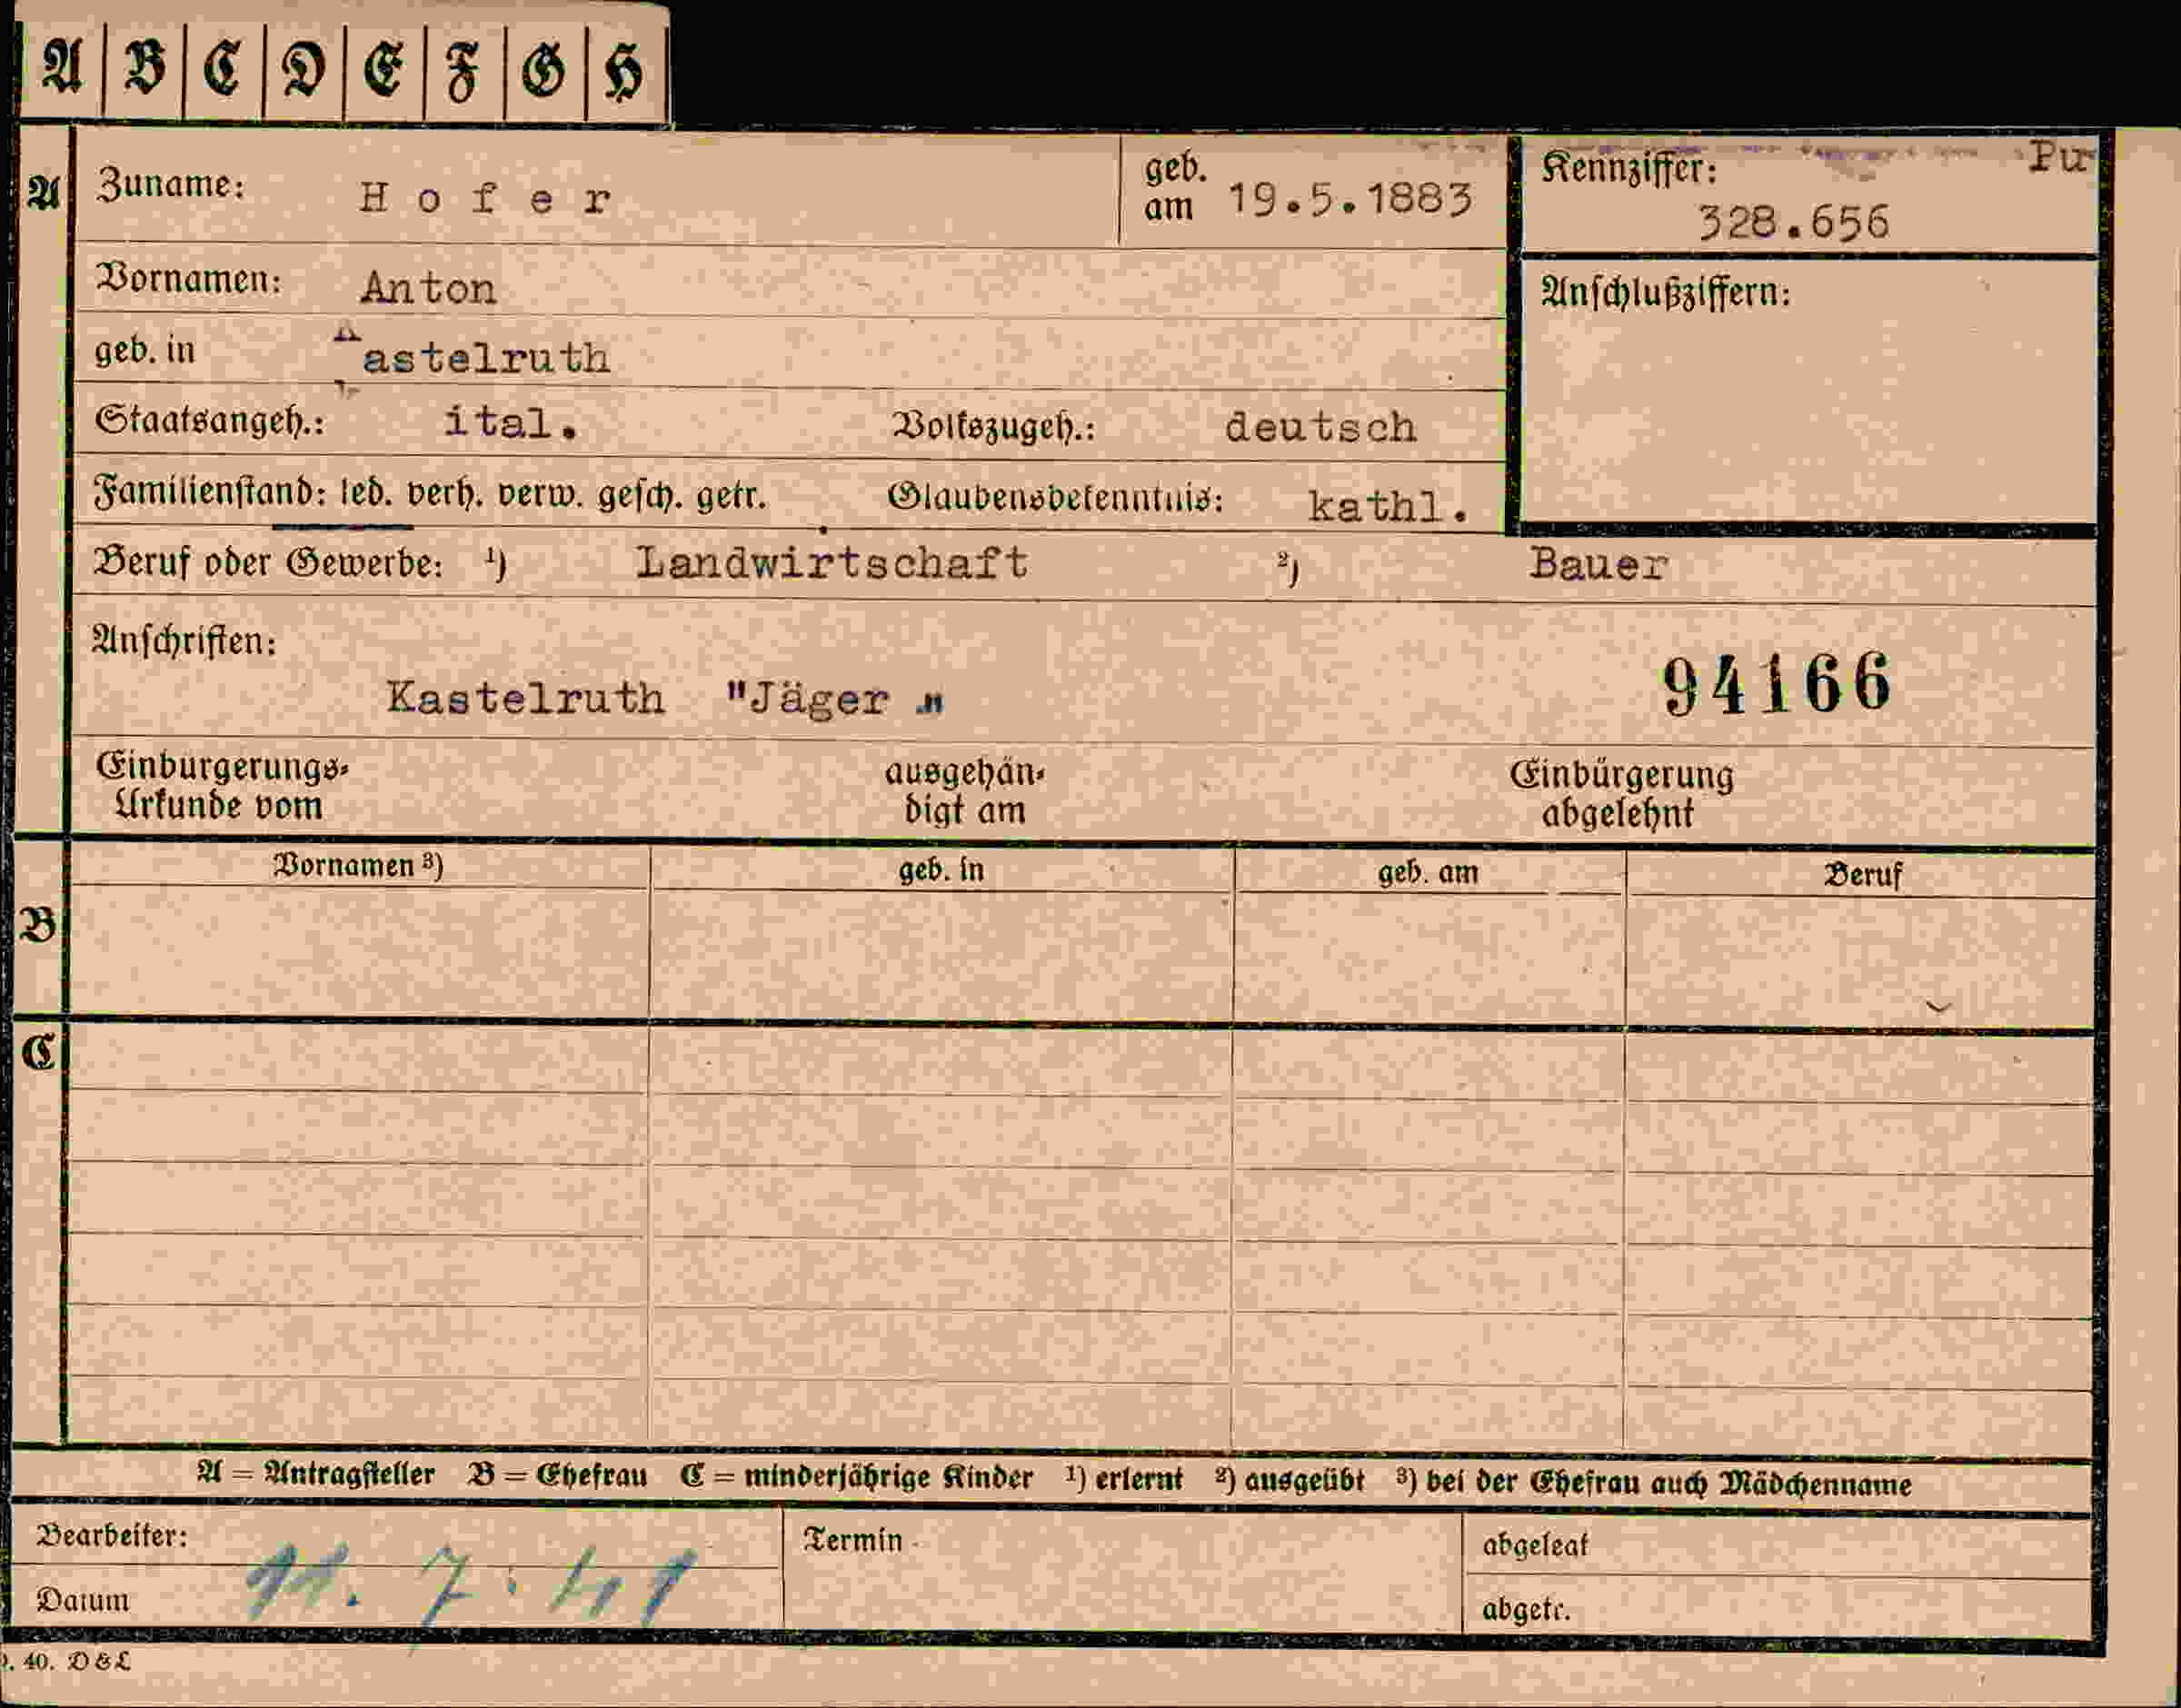 A B C D E F G H
A Zuname: Hofer geb. am 19.5.1883 Kennziffer: Pu
328.656
Vornamen: Anton Anschlußziffern:
geb. in Kastelruth
Staatsangeh.: ital. Volkszugeh.: deutsch
Familienstand: led. verh. verw. gesch. getr. Glaubensbekenntnis: kathl.
Beruf oder Gewerbe: 1) Landwirtschaft 2) Bauer
Anschriften:
Kastelruth "Jäger " 94166
Einbürgerungs- ausgehän- Einbürgerung
Urkunde vom digt am abgelehnt
Vornamen 3) geb. in geb. am Beruf
B
C
A = Antragsteller B = Ehefrau C = minderjährige Kinder 1) erlernt 2) ausgeübt 3) bei der Ehefrau auch Mädchenname
Bearbeiter: Termin abgelegt
Datum 11. 7. 41 abgetr.
40. D & L